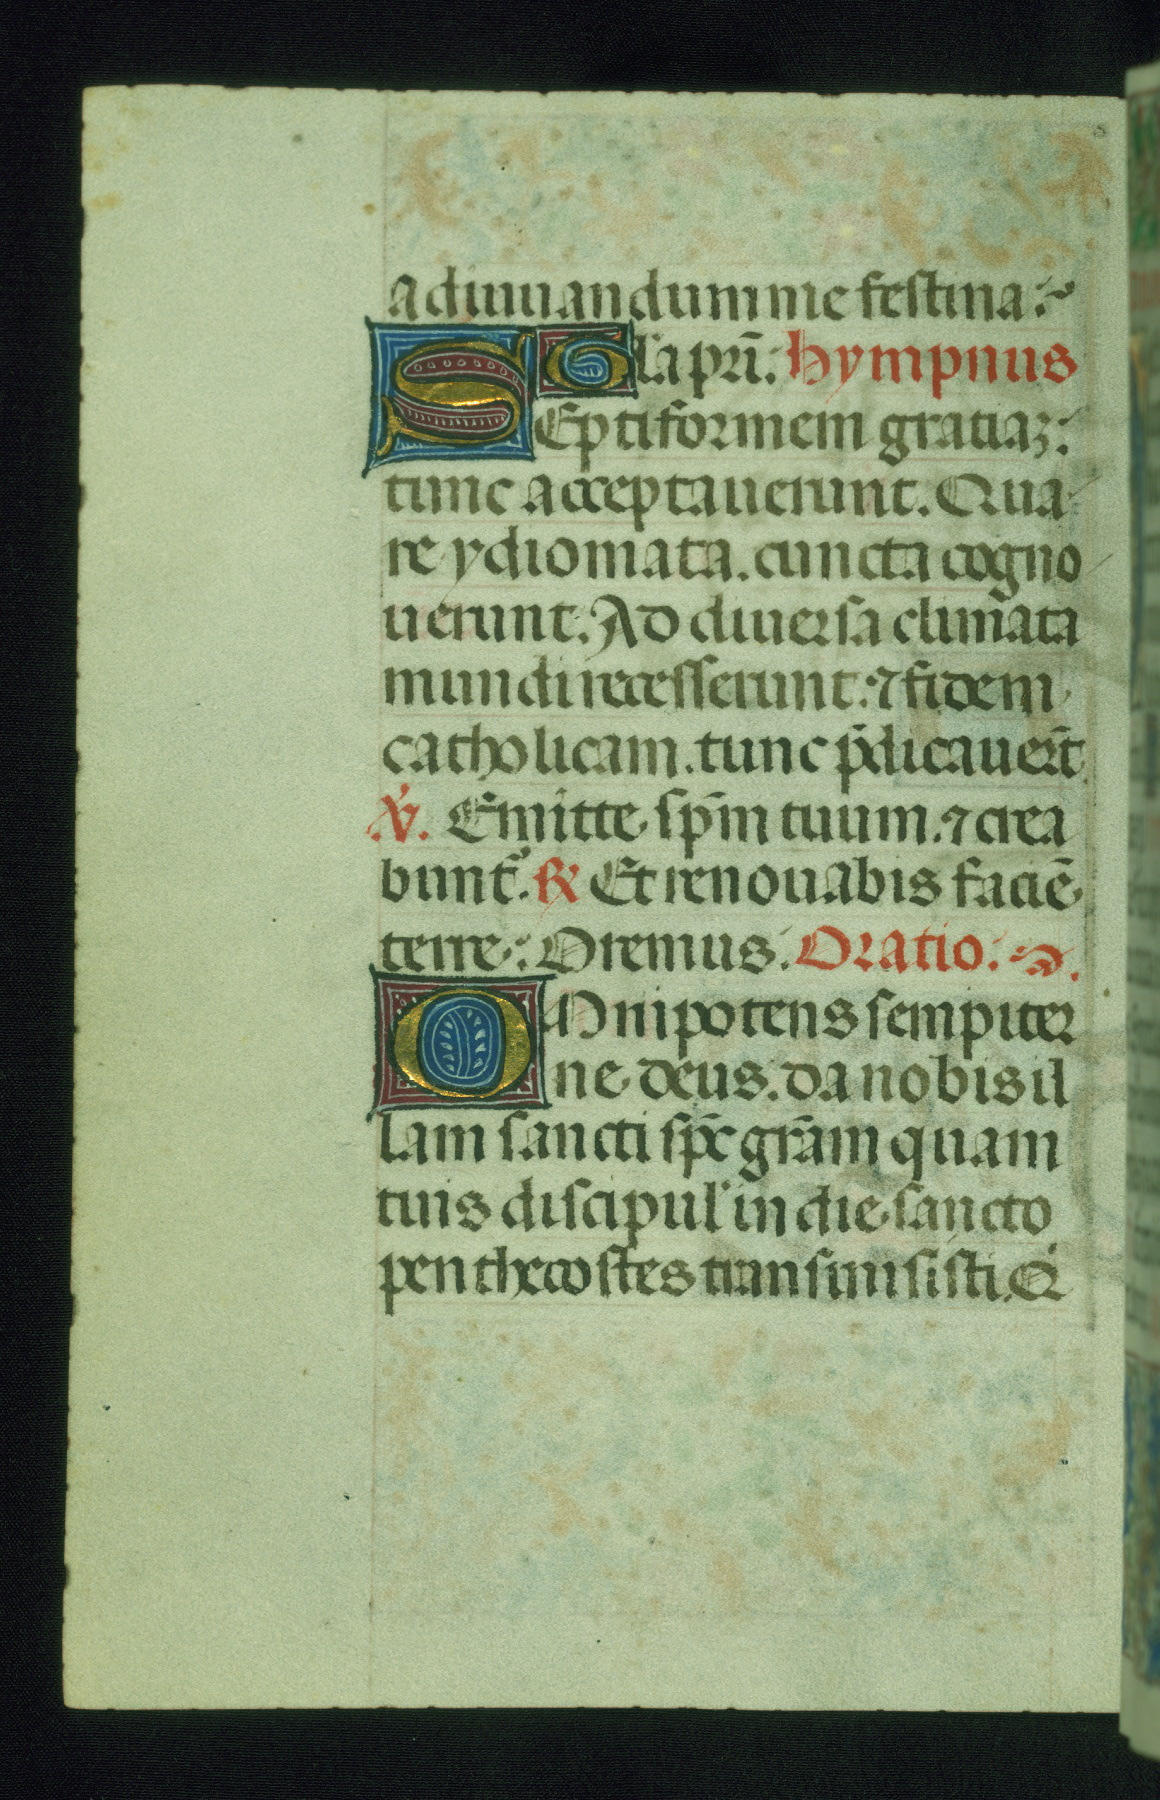 adiuuandum me festina:
Gl'a pr̄i. hympnus
SEptiformem gratiaꝫ:
tunc acceptauerunt. Qua
re ydiomata. cuncta cogno
uerunt. Ad diuersa climata
mundi recesserunt. ⁊ fidem
catholicam. tunc p̄dicauer̄t
℣. Emitte sp̄m tuum. ⁊ crea
bunt᷑. ℟ Et renouabis faciē
terre. Oremus. Oratio.
OMnipotens sempiter
ne deus. da nobis il
lam sancti sp̄c gr̄am quam
tuis discipul' in die sancto
penthecostes transmisisti. Q'